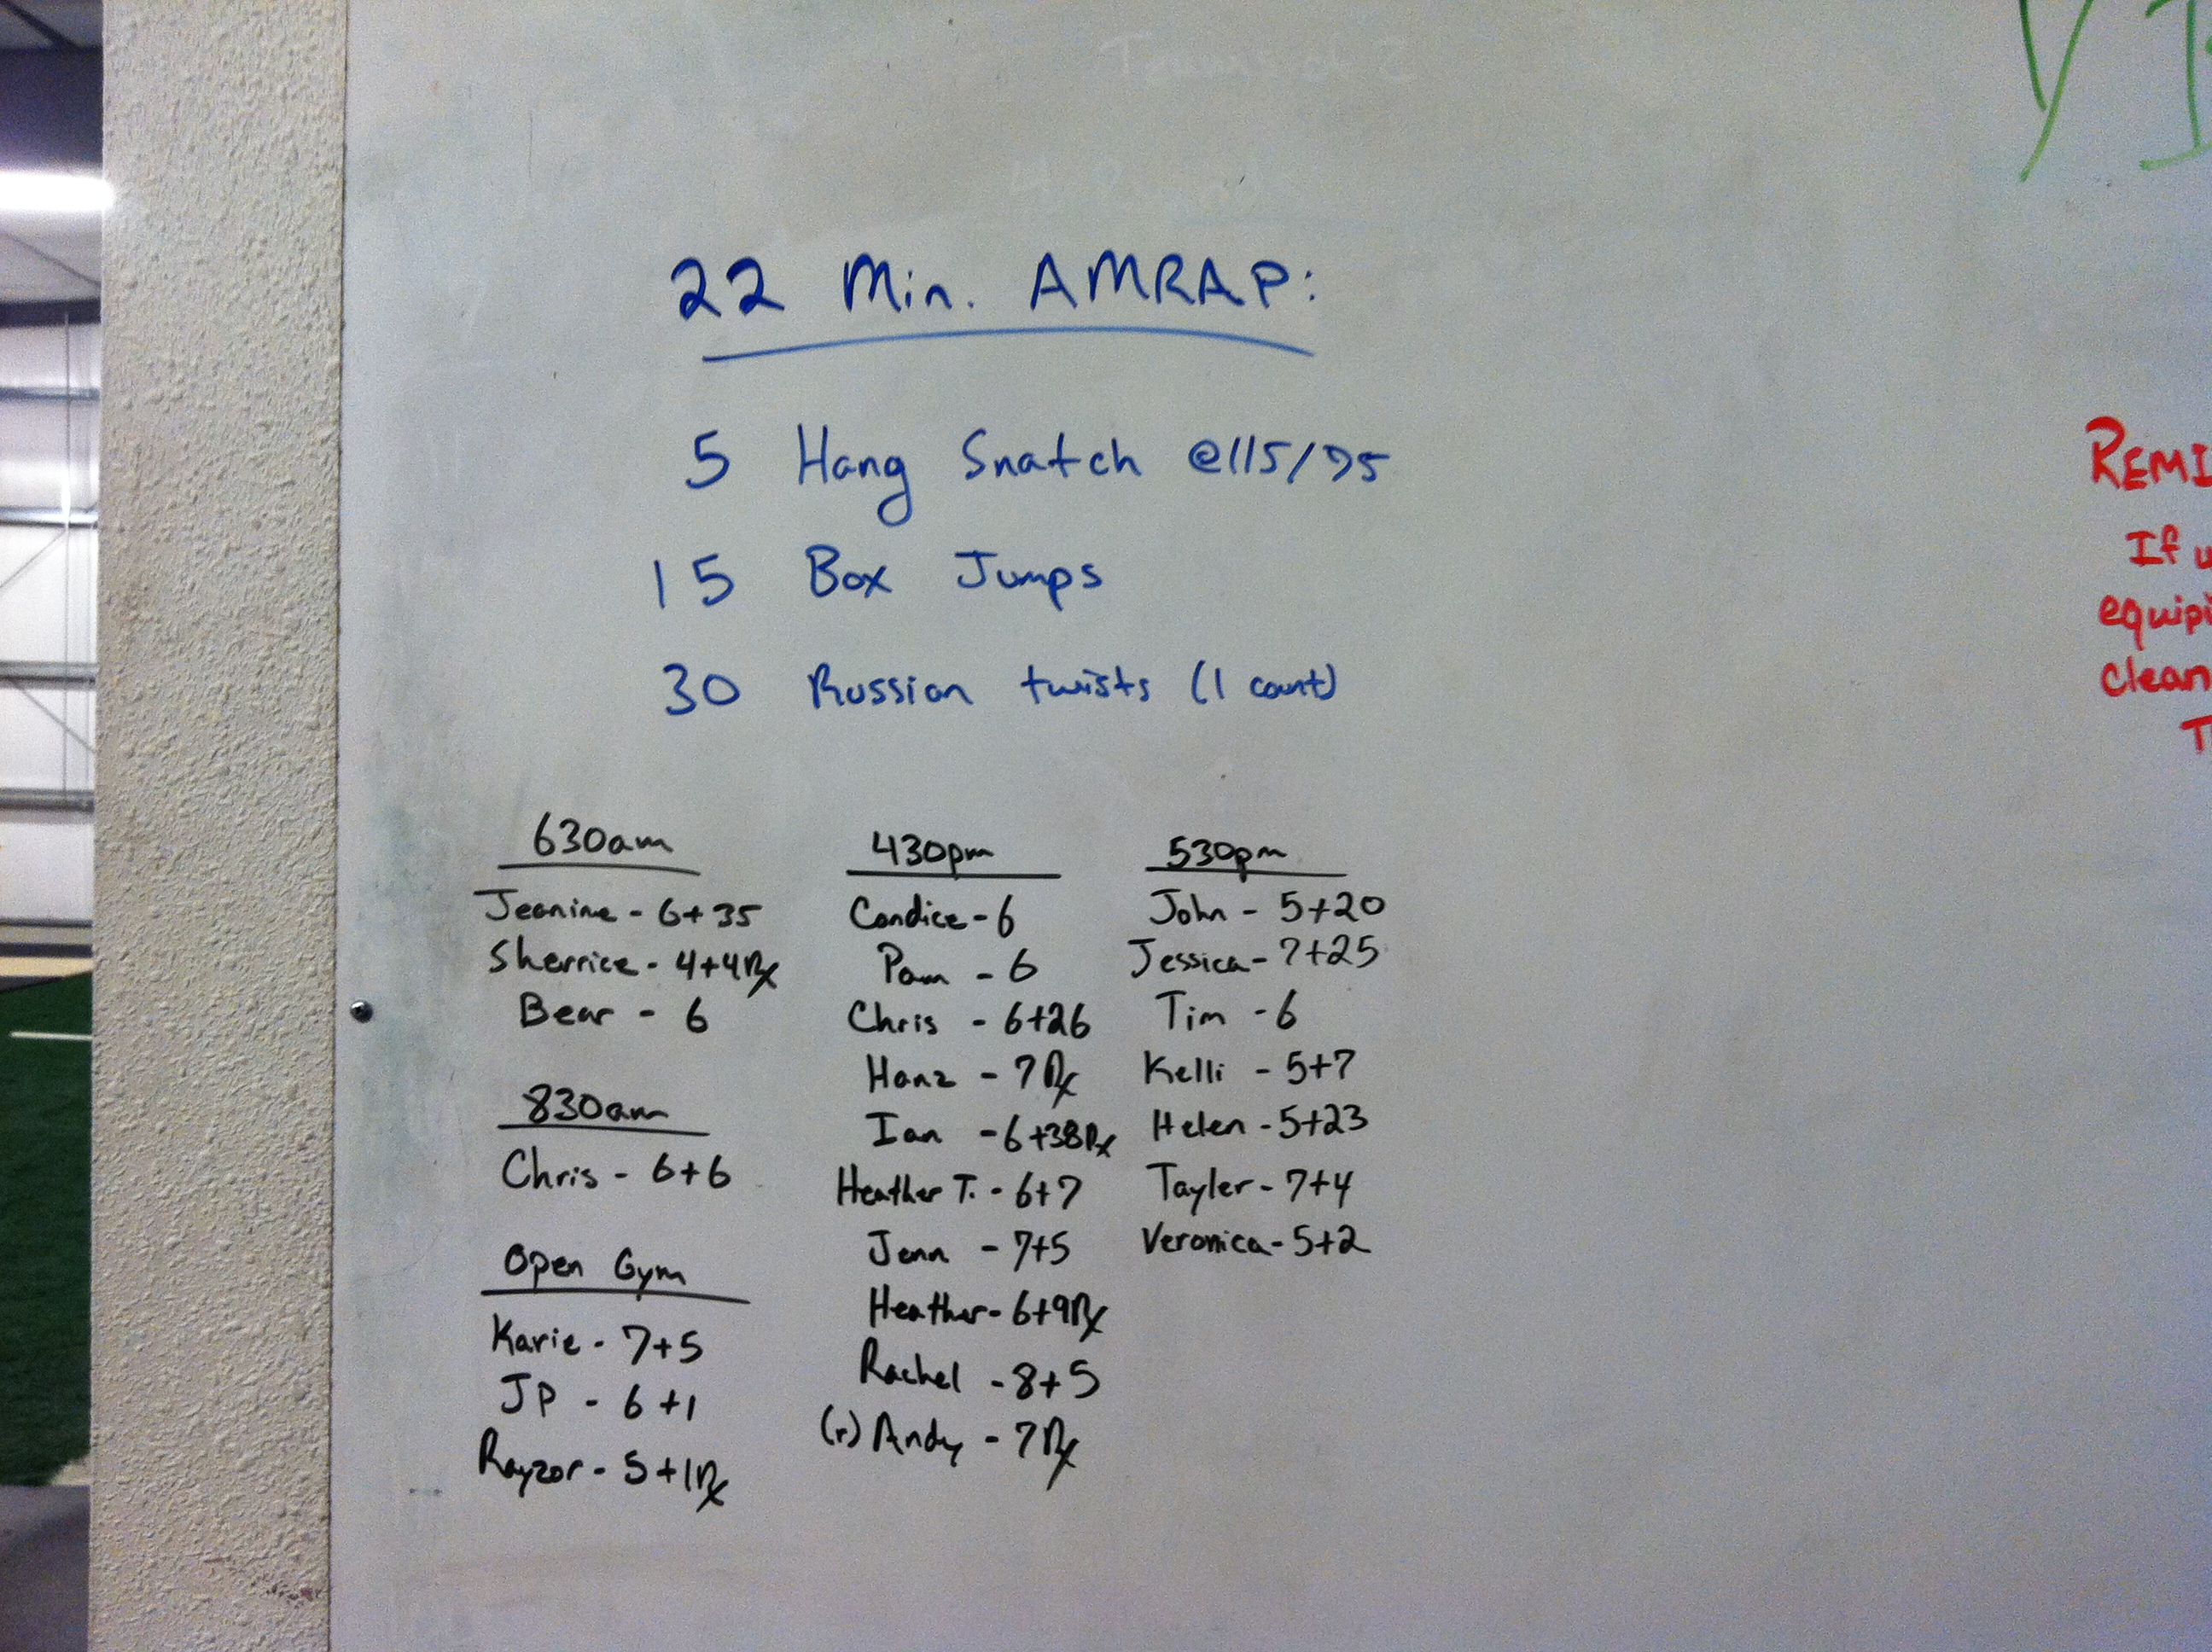 22 Min. AMRAP:
5 Hang Snatch @115/75
15 Box Jumps
30 Russian twists (1 count)
630am
Jeanine - 6+35
Sherrice - 4+4 Rx
Bear - 6
830am
Chris - 6+6
Open Gym
Karie - 7+5
JP - 6+1
Rayzor - 5+1 Rx
430pm
Candice - 6
Pam - 6
Chris - 6+26
Hanz - 7 Rx
Ian - 6+38 Rx
Heather T. - 6+7
Jenn - 7+5
Heather - 6+9 Rx
Rachel - 8+5
(r) Andy - 7 Rx
530pm
John - 5+20
Jessica - 7+25
Tim - 6
Kelli - 5+7
Helen - 5+23
Tayler - 7+4
Veronica - 5+2
REMI
If u
equip
clean
T